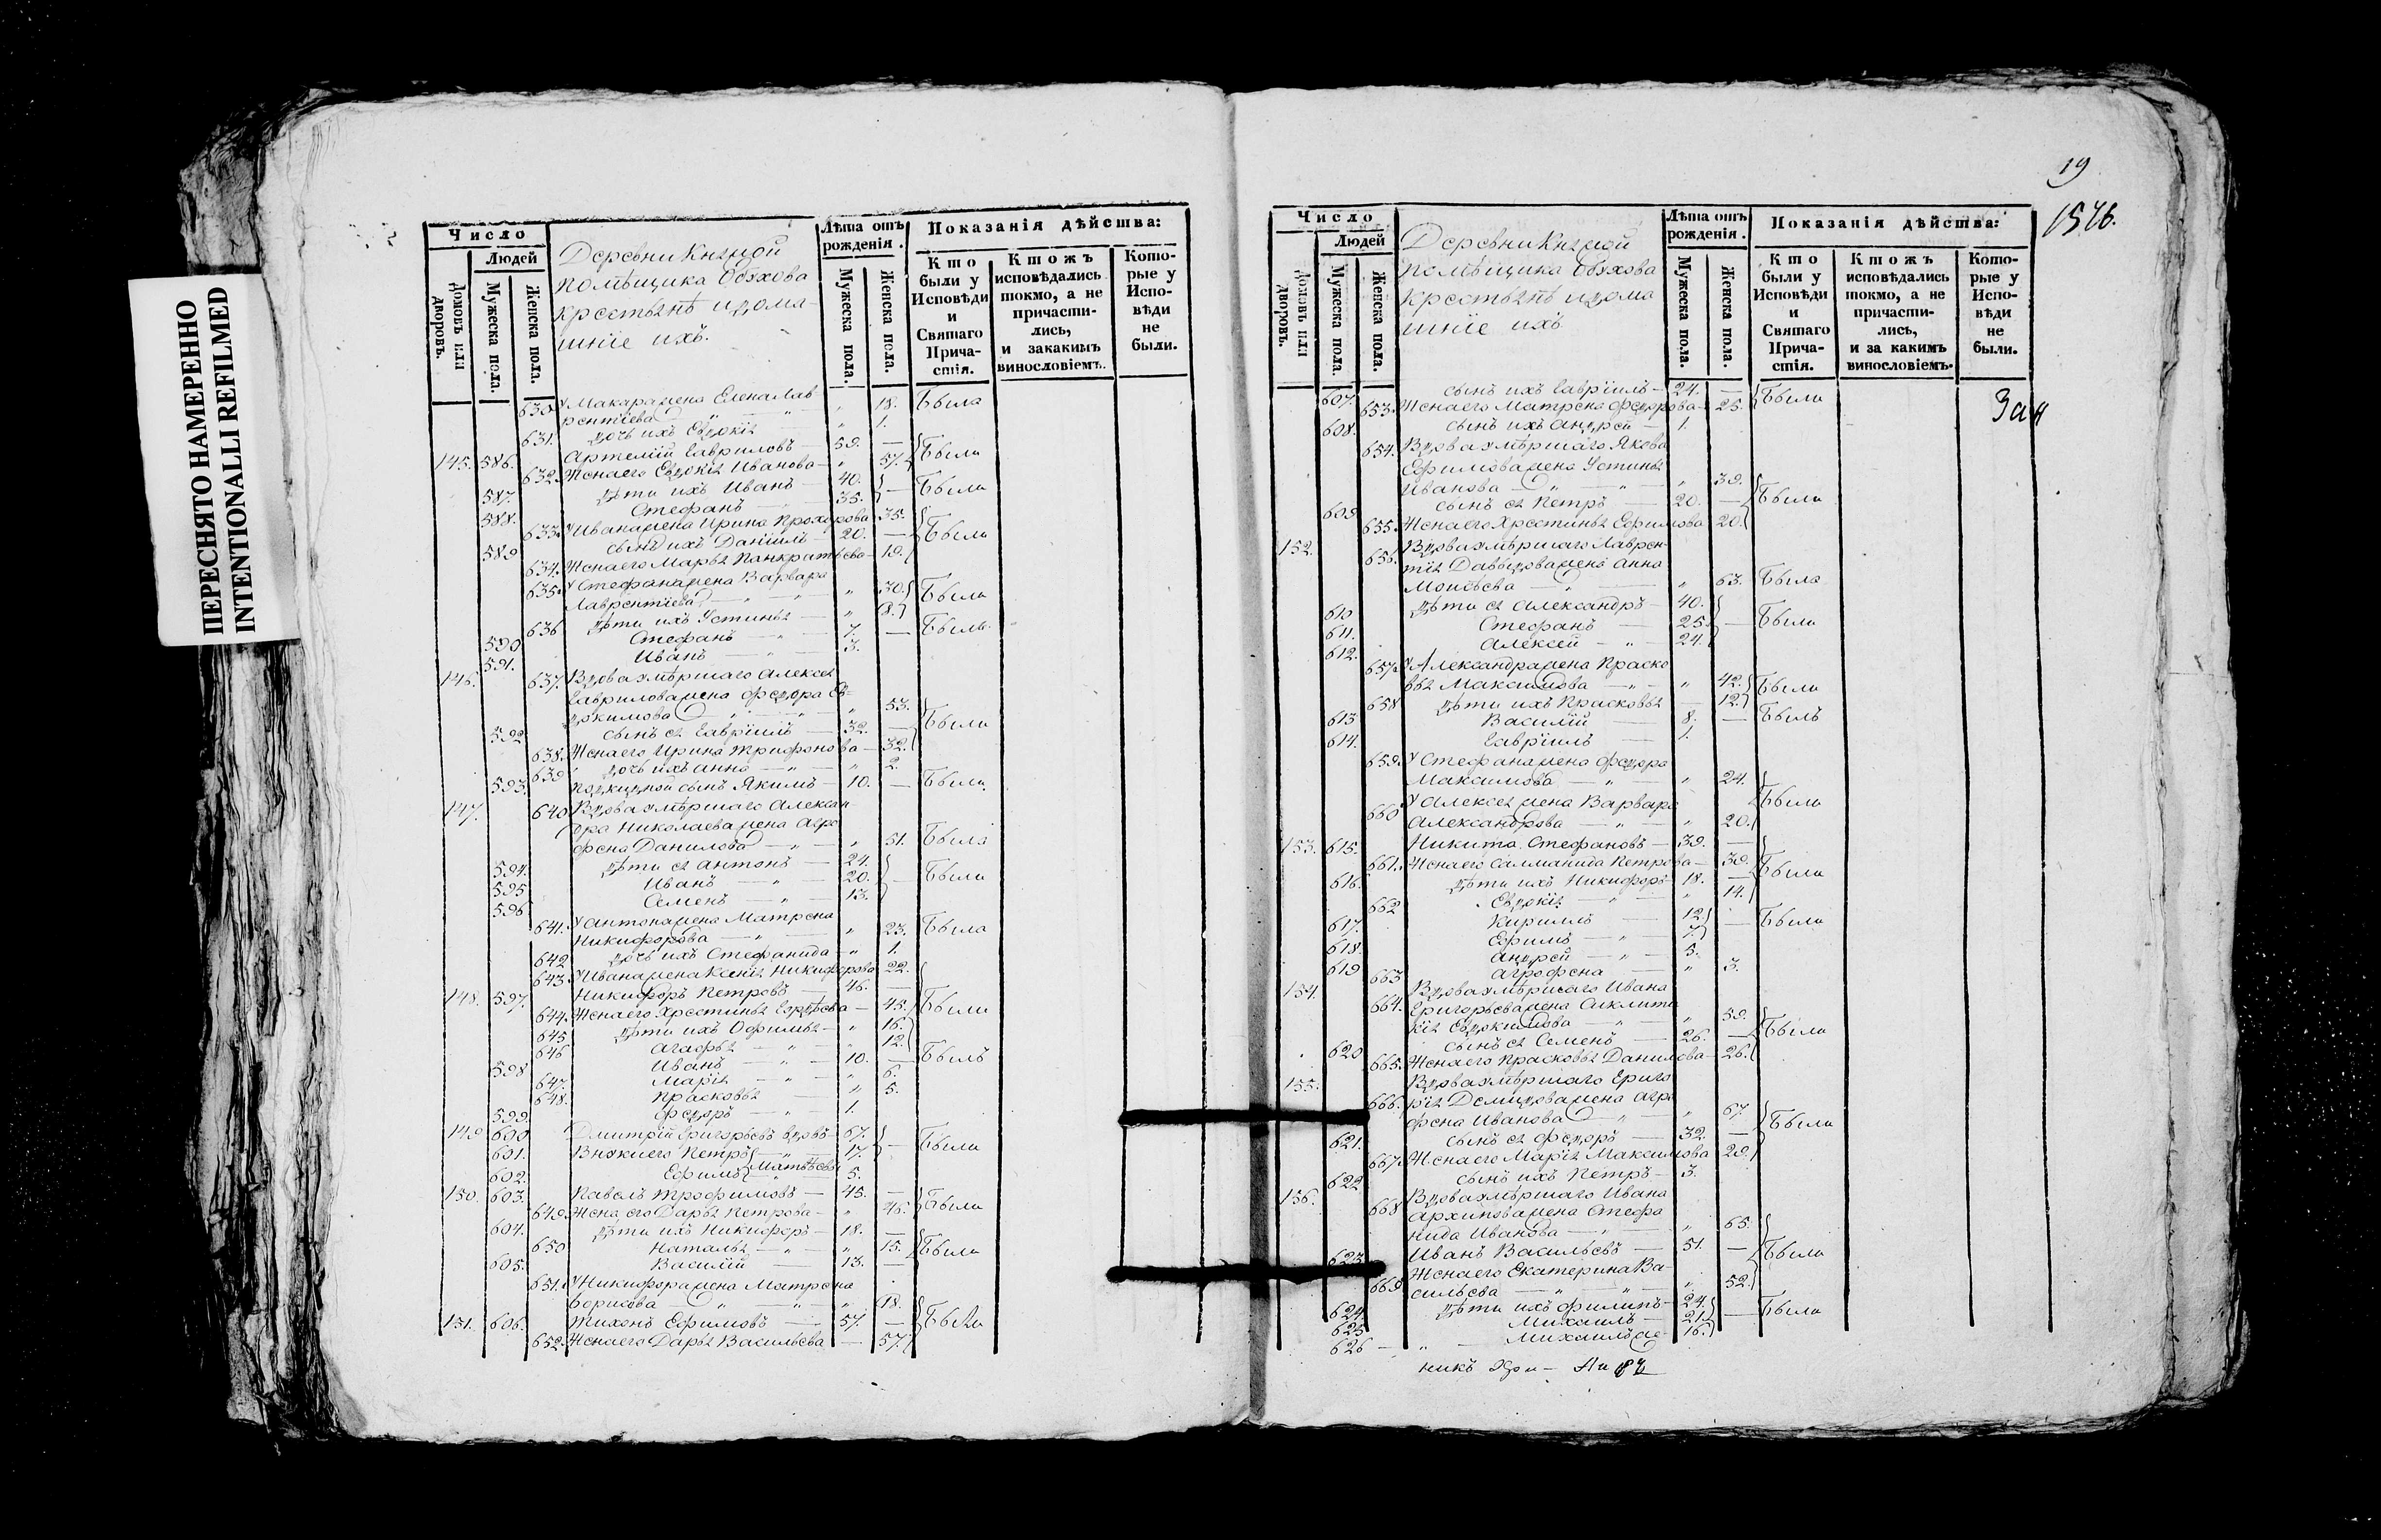 ПЕРЕСНЯТО НАМЕРЕННО
INTENTIONALLI REFILMED
Число
Людей
Домовъ или дворовъ.
Мужеска пола.
Женска пола.
Деревни Княжой
помѣщика Обухова
крестьянѣ и дома-
шніе ихъ.
Лѣта отъ рожденія.
Мужеска пола.
Женска пола.
Показанія дѣйства:
Кто были у Исповѣди и Святаго Прича-стія.
Ктожъ исповѣдались токмо, а не причасти-лись, и закакимъ винословіемъ.
Кото-рые у Испо-вѣди не были.
630. У Макара жена Елена Лав-
рентіева — „ 18. Была
631. дочь ихъ Евдокія — „ 1.
145. 586. Артемій Гавриловъ — 59. — Были
632. Жена его Евдокія Иванова — „ 57.
587. Дѣти ихъ Иванъ — 40. — Были
588. Стефанъ — 35.
633. У Ивана жена Ирина Прохорова 35. Были
589 сынъ ихъ Даніилъ — 20. —
634. Жена его Марья Панкратьева — 19.
635. У Стефана жена Варвара
Лаврентіева — „ 30. Были
636 Дѣти ихъ Устинья — „ 8.
590 Стефанъ — 7. — Былъ
591. Иванъ — 3.
146. 637. Вдова умѣршаго Алексея
Гаврилова жена Федора Ев-
докимова — „ 53. Были
592 сынъ ея Гавріилъ — 32. —
638. Жена его Ирина Трифонова — 32.
639 дочь ихъ Анна — „ 2.
593. Подкидной сынъ Якимъ — 10. — Были
147. 640 Вдова умѣршаго Алексан-
дра Николаева жена Агро
фена Данилова — „ 51. Была
594. Дѣти ея Антонъ — 24. — Были
595 Иванъ — 20.
596 Семенъ — 13.
641. У Антона жена Матрена
Никифорова — „ 23. Была
642 дочь ихъ Стефанида — „ 1.
643. У Ивана жена Ксенія Никифорова 22.
148. 597. Никифоръ Петровъ — 46. — Были
644. Жена его Хрестинья Гордѣева — 45.
645 Дѣти ихъ Офимья — „ 16.
646 Агафья — „ 12.
598 Иванъ — 10. — Былъ
647. Марія — „ 6.
648. Прасковья — „ 5.
599. Федоръ — 1.
149 600 Дмитрій Григорьевъ вдовъ — 67. — Были
601. Внуки его Петръ — 17.
602. Ефимъ Матвѣевы 5.
150. 603. Павелъ Трофимовъ — 45. — Были
649. Жена его Дарья Петрова — „ 46.
604. Дѣти ихъ Никифоръ — 18. — Были
650 Наталья — „ 15.
605. Василій — 13. —
651. У Никифора жена Матрена
Борисова — „ 18. Были
151. 606. Тихонъ Ефимовъ — 57. —
652. Жена его Дарья Васильева — 57.
19
1546.
Число
Людей
Домовъ или дворовъ.
Мужеска пола.
Женска пола.
Деревни Княжой
помѣщика Обухова
крестьянѣ и дома
шніе ихъ
Лѣта отъ рожденія.
Мужеска пола.
Женска пола.
Показанія дѣйства:
Кто были у Исповѣди и Святаго Прича-стія.
Ктожъ исповѣдались токмо, а не причасти-лись, и за какимъ винословіемъ.
Кото-рые у Испо-вѣди не были.
607. сынъ ихъ Гавріилъ — 24. — Были
653. Жена его Матрена Федорова — 25.
608. сынъ ихъ Андрей — 1.
654. Вдова умѣршаго Якова
Ефимова жена Устинья
Иванова — „ 39. Были
609 сынъ ея Петръ — 20. —
655. Жена его Хрестинья Ефимова 20.
152. 656. Вдова умѣршаго Лаврен-
тія Давыдова жена Анна
Моисѣева — „ 63. Была
610 Дѣти ея Александръ — 40. — Были
611. Стефанъ — 25.
612. Алексей — 24.
657. У Александра жена Праско
вья Максимова — „ 42. Были
658 Дѣти ихъ Прасковья — 12.
613 Василій — 8. — Былъ
614. Гавріилъ — 1.
659. У Стефана жена Федора
Максимова — „ 24. Были
660 У Алексея жена Варвара
Александрова — „ 20.
153. 615. Никита Стефановъ — 39. — Были
661. Жена его Саламанида Петрова — 39.
616. Дѣти ихъ Никифоръ — 18. —
662 Евдокія — „ 14.
617. Кирилъ — 12. — Были
618. Ефимъ — 7.
619 Андрей — 5.
663 Агрофена — „ 3.
154. 664. Вдова умѣршаго Ивана
Григорьева жена Сиклити
кія Евдокимова — „ 59. Были
620 сынъ ея Семенъ — 26. —
665. Жена его Прасковья Данилова — 26.
155. 666. Вдова умѣршаго Григо
рія Демидова жена Агро
фена Иванова — „ 67. Были
621. сынъ ея Федоръ — 32. —
667. Жена его Марія Максимова 29.
622 сынъ ихъ Петръ — 3.
156. 668 Вдова умѣршаго Ивана
Архипова жена Стефа
нида Иванова — „ 65. Были
623 Иванъ Васильевъ — 51. —
669 Жена его Екатерина Ва-
сильева — „ 52.
624. Дѣти ихъ Филипъ — 24. — Были
625 Михаилъ — 21.
626 — „ — Михаилъ 16.